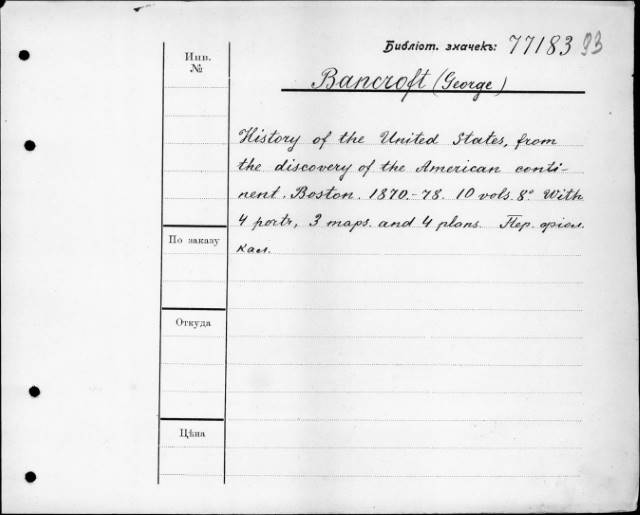 Библіот. значекъ: 77183 93
Инв.
№
Bancroft (George)
History of the United States, from
the discovery of the American conti-
nent. Boston. 1870-78. 10 vols. 8° With
4 portr, 3 maps. and 4 plans. Пер. фіол.
кал.
По заказу
Откуда
Цѣна